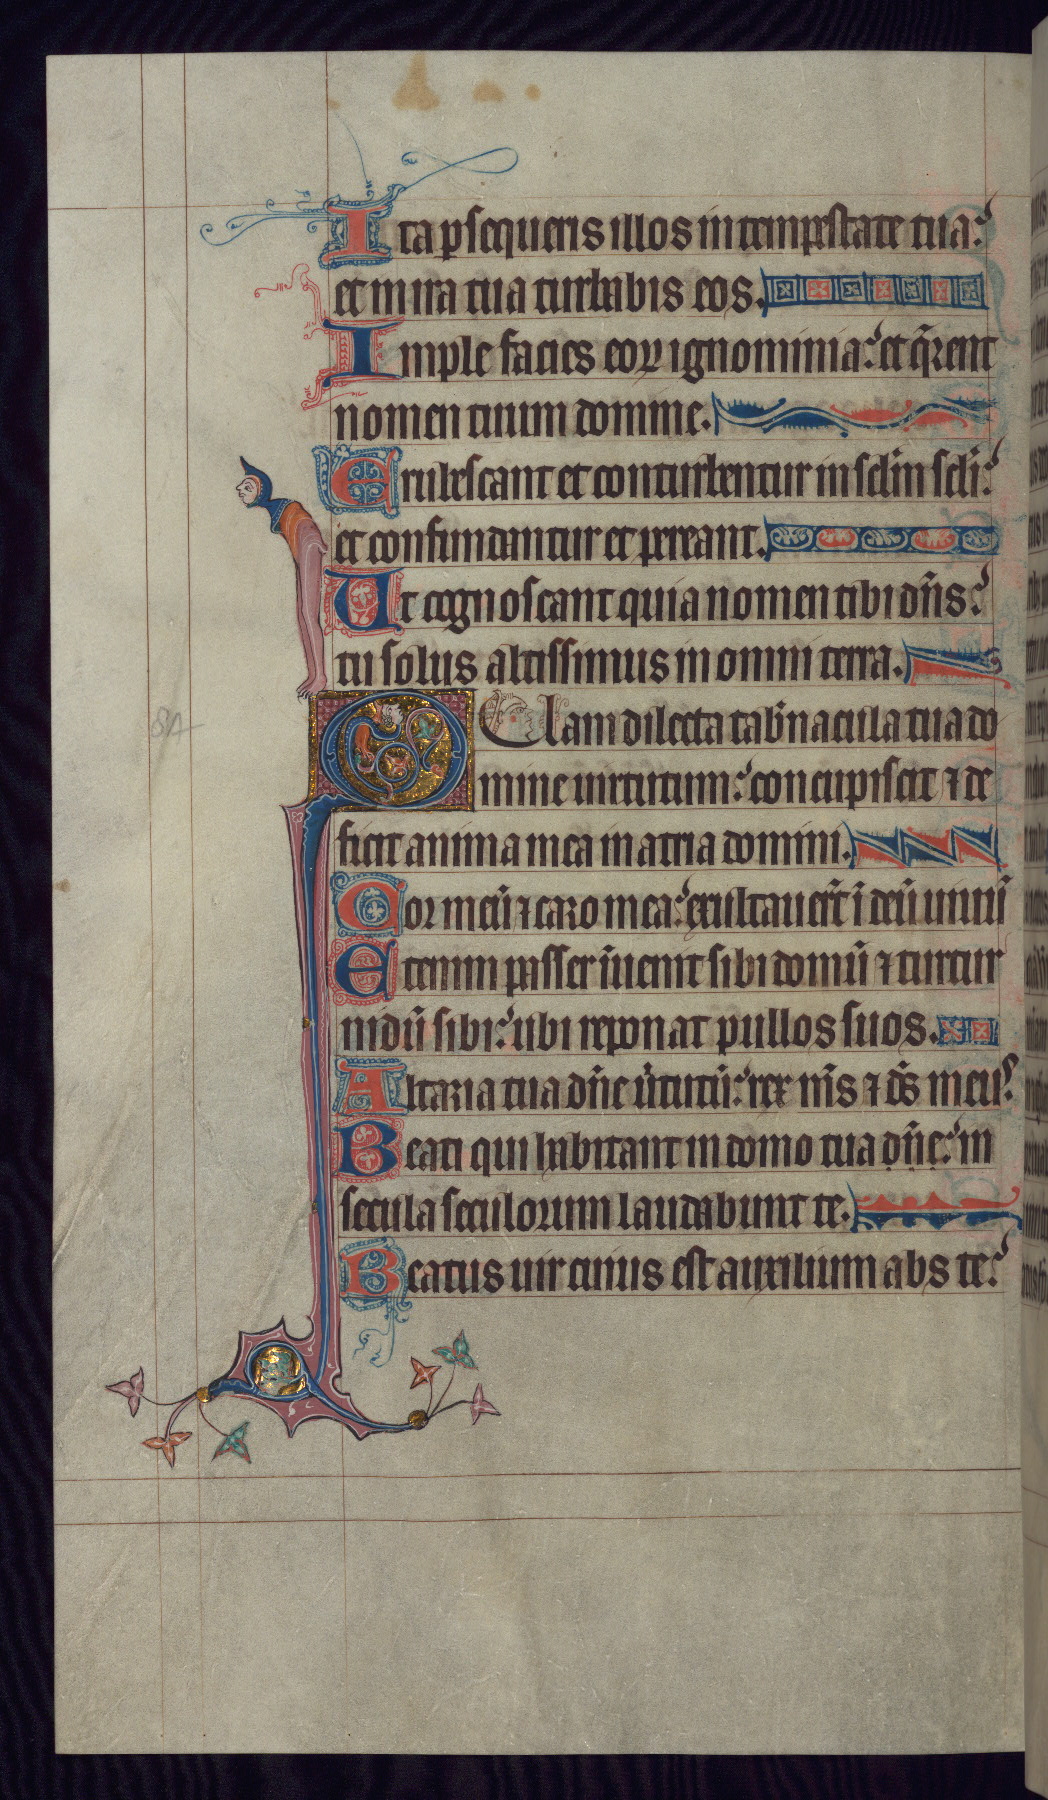 Ita ꝑsequeris illos in tempestate tua:
et in ira tua turbabis eos.
Imple facies eoꝝ ignominia: et q̄rent
nomen tuum domine.
Erubescant et conturbentur in sc̄lm sc̄li:
et confundantur et pereant.
Ut cognoscant quia nomen tibi dn̄s:
tu solus altissimus in omni terra.
Quam dilecta tab̄nacula tua do
mine uirtutum: concupiscit ⁊ de
ficit anima mea in atria domini.
Cor meū ⁊ caro mea: exultauer̄t ī deū uiuū
Etenim passer īuenit sibi domū ⁊ turtur
nidū sibi: ubi reponat pullos suos.
Altaria tua dn̄e ūtutū: rex m̄s ⁊ ds̄ meus:
Beati qui habitant in domo tua dn̄e: in
secula seculorum laudabunt te.
Beatus uir cuius est auxilium abs te:
84